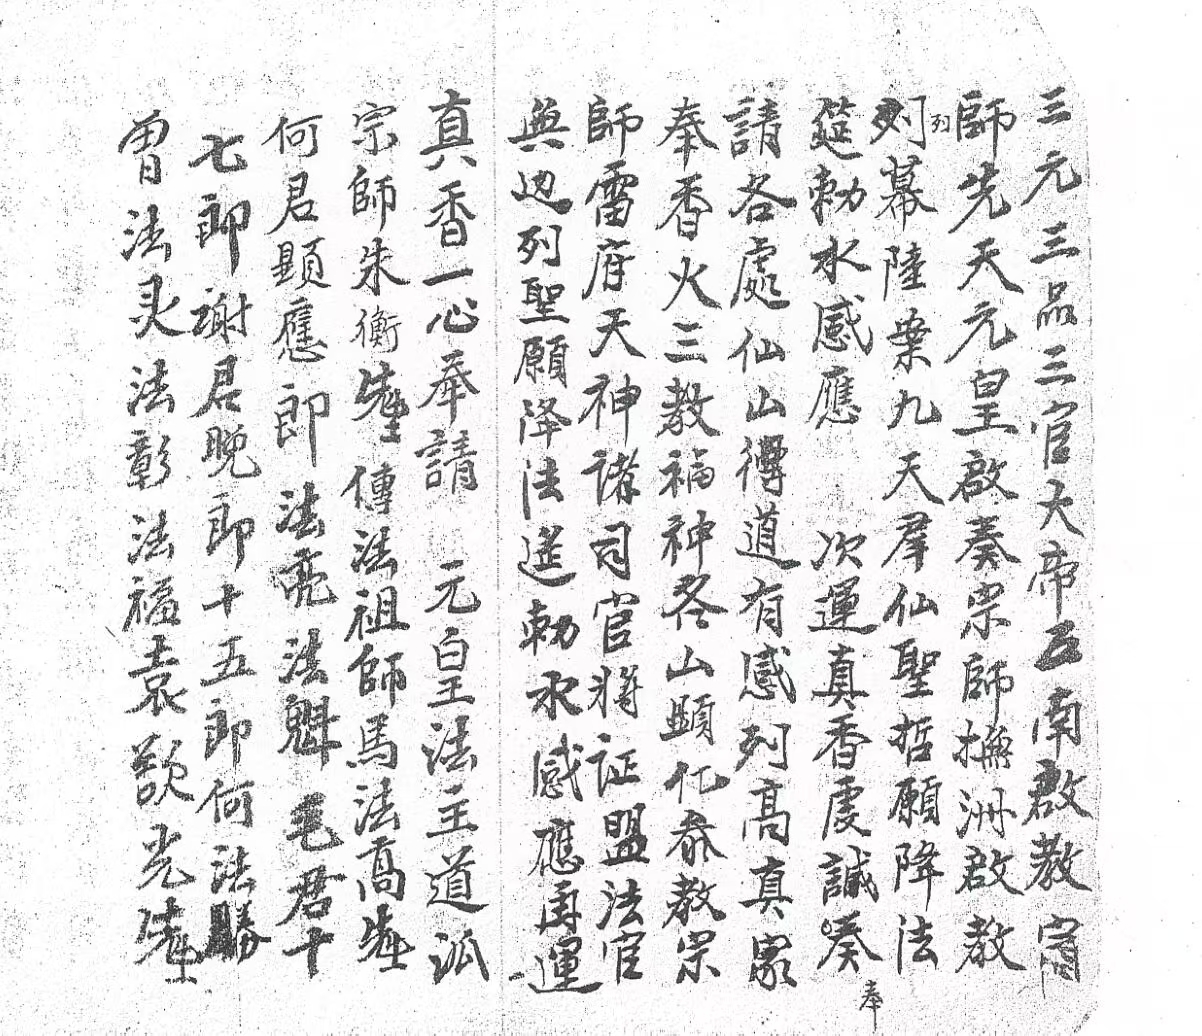 三元三品三官大帝五南啟教宗
師先天元皇啟奏宗師撫洲啟教
列列幕陞業九天群仙聖哲願降法
筵勅水感應 次運真香虔誠奏
奉
請各處仙山得道有感列高真眾
奉香火三教福神各山顕化叅教宗
師雷府天神諸司官將证盟法官
無边列聖願降法筵勅水感應再運
真香一心奉請 元皇法主道派
宗師朱衡先生傳法祖師馬法高先生
何君顯應郎法亮法魁毛君十
七郎謝君晚郎十五郎何法勝
曾法灵法彰法福袁歆光先生